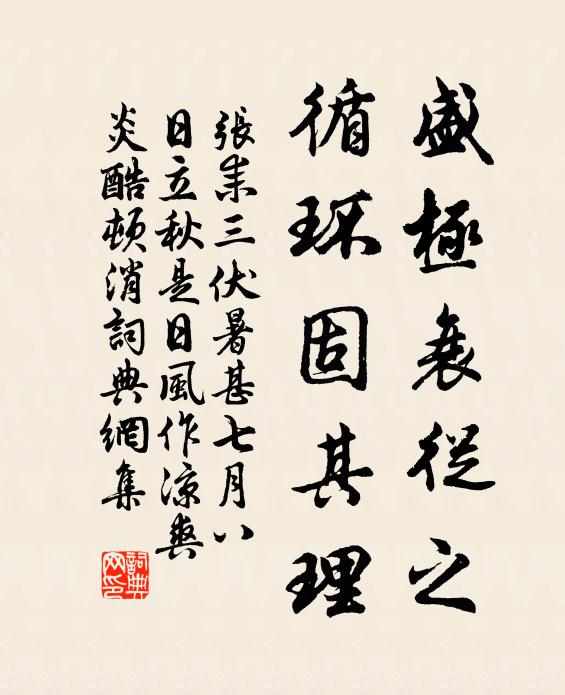 盛極衰從之
循環固其理
張耒三伏暑甚七月八
日立秋是日風作涼爽
炎酷頓消詞典網集
詞典
网印